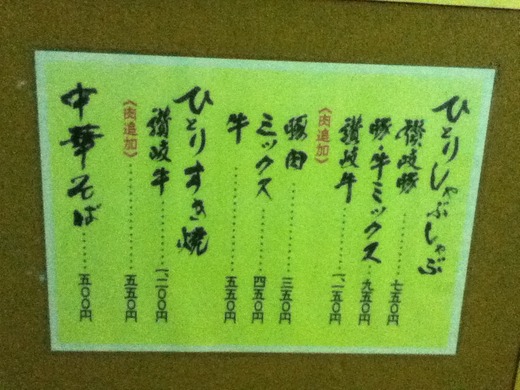 ひとりしゃぶしゃぶ
讃岐豚………七五〇円
豚・牛ミックス……九五〇円
讃岐牛………一一五〇円
《肉追加》
豚肉………三五〇円
ミックス………四五〇円
牛………五五〇円
ひとりすき焼
讃岐牛………一二〇〇円
《肉追加》………五五〇円
中華そば………五〇〇円